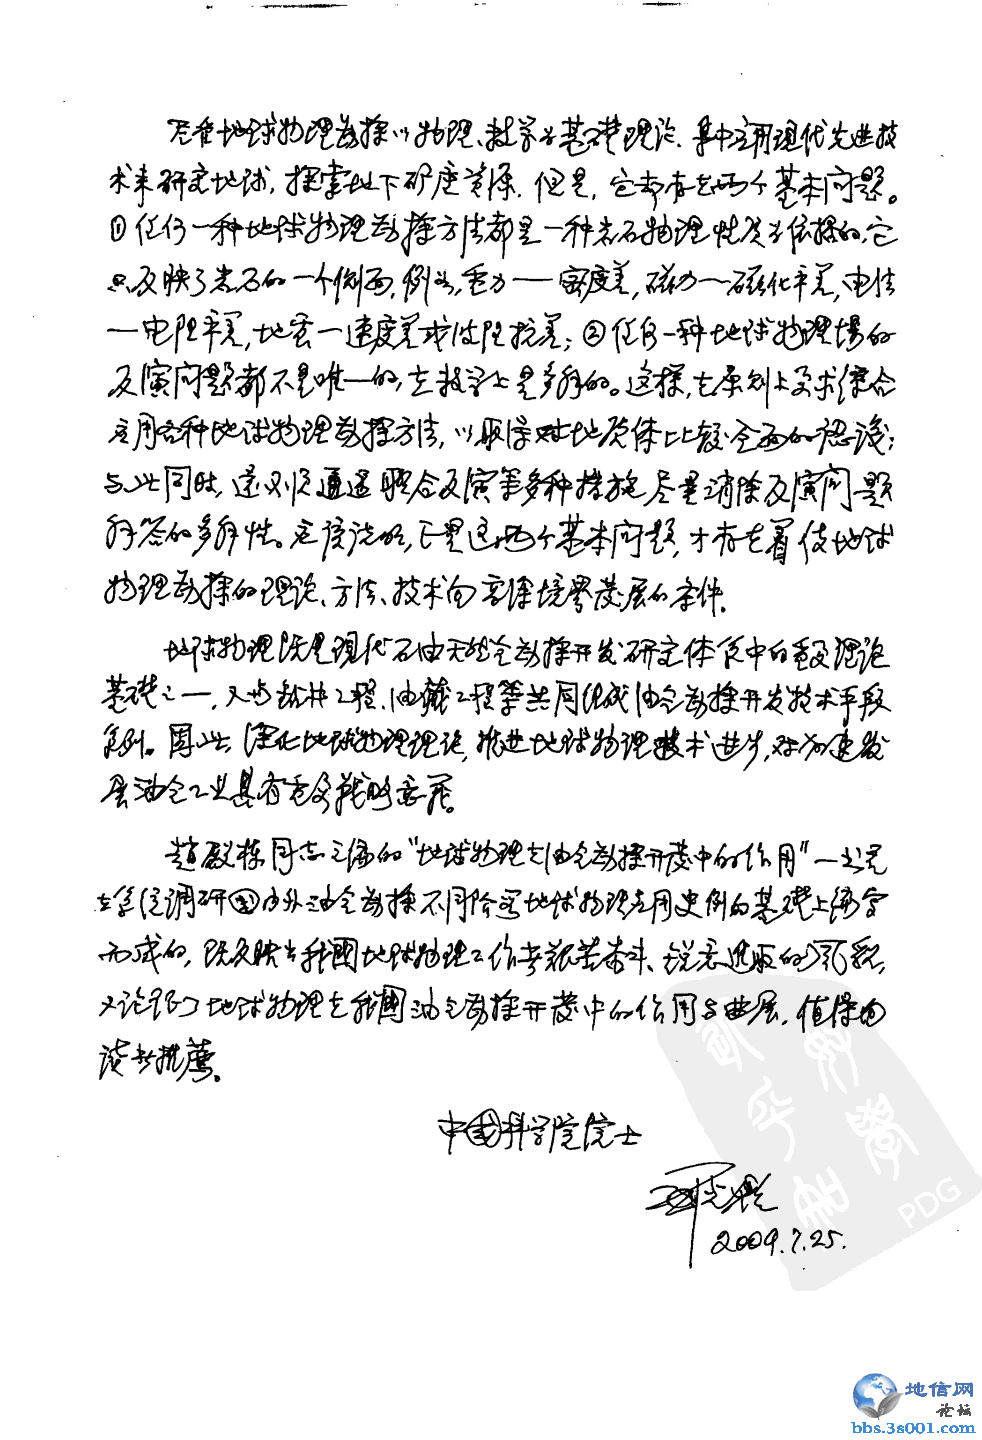 尽管地球物理勘探以物理、数学为基础理论,集中应用现代先进技
术来研究地球,探索地下矿产资源,但是,它却存在两个基本问题。
①任何一种地球物理勘探方法都是一种岩石物理性质为依据的,它
只反映了岩石的一个侧面,例如,重力——密度差,磁力—磁化率差,电法
—电阻率差,地震—速度差或波阻抗差;②任何一种地球物理场的
反演问题都不是唯一的,在数学上是多解的。这样,在原则上要求综合
应用各种地球物理勘探方法,以取得对地质体比较全面的认识;
与此同时,还必须通过联合反演等多种措施尽量消除反演问题
解答的多解性。应该说的,正是这两个基本问题,才存在着使地球
物理勘探的理论、方法、技术向高深境界发展的条件。
地球物理既是现代石油天然气勘探开发研究体系中的重要理论
基础之一,又与钻井工程、油藏工程等共同组成油气勘探开发技术手段
系列。因此,深化地球物理理论,推进地球物理技术进步,对加速发
展油气工业具有重要战略意义。
赵殿栋同志主编的"地球物理在油气勘探开发中的作用"一书是
在系统调研国内外油气勘探不同阶段地球物理应用史例的基础上编写
而成的,既反映出我国地球物理工作者艰苦奋斗、锐意进取的风貌,
又论证了地球物理在我国油气勘探开发中的作用与发展,值得向
读者推荐。
中国科学院院士
2009.7.25.
PDG
地信网
论坛
bbs.3s001.com